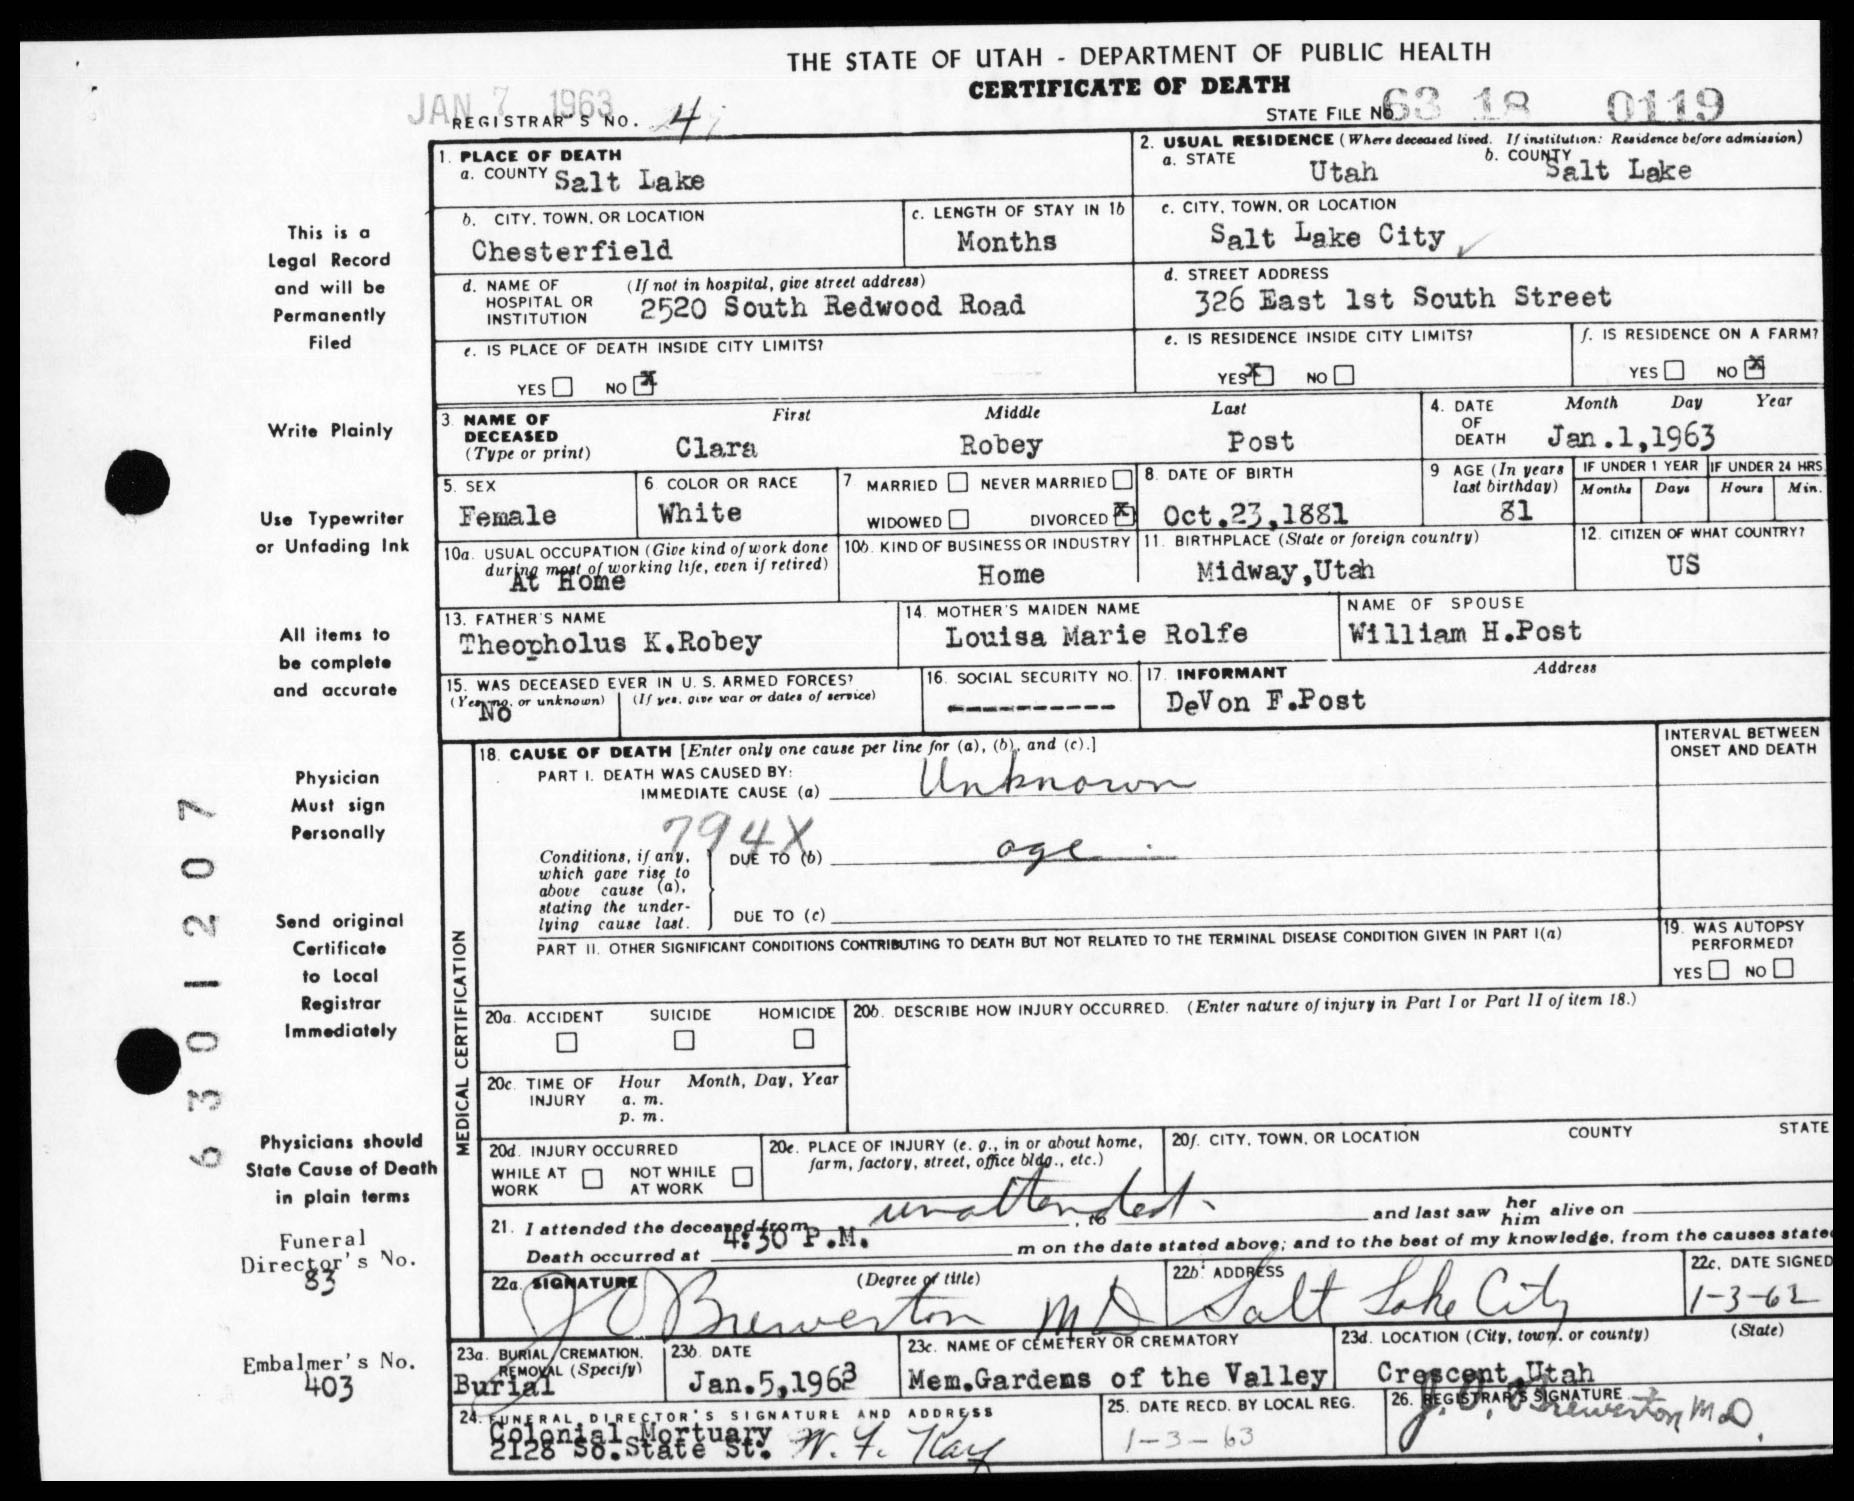 THE STATE OF UTAH - DEPARTMENT OF PUBLIC HEALTH
CERTIFICATE OF DEATH
JAN 7 1963
REGISTRAR'S NO. 4
STATE FILE NO. 63 18 0119
1. PLACE OF DEATH
a. COUNTY Salt Lake
2. USUAL RESIDENCE (Where deceased lived. If institution: Residence before admission)
a. STATE Utah b. COUNTY Salt Lake
b. CITY, TOWN, OR LOCATION
Chesterfield
c. LENGTH OF STAY IN 1b
Months
c. CITY, TOWN, OR LOCATION
Salt Lake City
d. NAME OF HOSPITAL OR INSTITUTION (If not in hospital, give street address)
2520 South Redwood Road
d. STREET ADDRESS
326 East 1st South Street
e. IS PLACE OF DEATH INSIDE CITY LIMITS?
YES NO X
e. IS RESIDENCE INSIDE CITY LIMITS?
YES X NO
f. IS RESIDENCE ON A FARM?
YES NO X
3. NAME OF DECEASED (Type or print)
First Middle Last
Clara Robey Post
4. DATE OF DEATH Month Day Year
Jan.1,1963
5. SEX
Female
6 COLOR OR RACE
White
7 MARRIED NEVER MARRIED
WIDOWED DIVORCED X
8. DATE OF BIRTH
Oct.23,1881
9 AGE (In years last birthday)
81
IF UNDER 1 YEAR
Months Days
IF UNDER 24 HRS.
Hours Min.
10a. USUAL OCCUPATION (Give kind of work done during most of working life, even if retired)
At Home
10b. KIND OF BUSINESS OR INDUSTRY
Home
11. BIRTHPLACE (State or foreign country)
Midway,Utah
12. CITIZEN OF WHAT COUNTRY?
US
13. FATHER'S NAME
Theopholus K.Robey
14. MOTHER'S MAIDEN NAME
Louisa Marie Rolfe
NAME OF SPOUSE
William H.Post
15. WAS DECEASED EVER IN U. S. ARMED FORCES?
(Yes, no, or unknown) (If yes, give war or dates of service)
No
16. SOCIAL SECURITY NO.
----------
17. INFORMANT Address
DeVon F.Post
MEDICAL CERTIFICATION
18. CAUSE OF DEATH [Enter only one cause per line for (a), (b), and (c).]
INTERVAL BETWEEN ONSET AND DEATH
PART I. DEATH WAS CAUSED BY:
IMMEDIATE CAUSE (a) Unknown
794X
Conditions, if any, which gave rise to above cause (a), stating the underlying cause last.
DUE TO (b) age
DUE TO (c)
PART II. OTHER SIGNIFICANT CONDITIONS CONTRIBUTING TO DEATH BUT NOT RELATED TO THE TERMINAL DISEASE CONDITION GIVEN IN PART I(a)
19. WAS AUTOPSY PERFORMED?
YES NO
20a. ACCIDENT SUICIDE HOMICIDE
20b. DESCRIBE HOW INJURY OCCURRED. (Enter nature of injury in Part I or Part II of item 18.)
20c. TIME OF INJURY Hour Month, Day, Year
a. m.
p. m.
20d. INJURY OCCURRED
WHILE AT WORK NOT WHILE AT WORK
20e. PLACE OF INJURY (e. g., in or about home, farm, factory, street, office bldg., etc.)
20f. CITY, TOWN, OR LOCATION COUNTY STATE
21. I attended the deceased from unattended, to and last saw her him alive on
Death occurred at 4:30 P.M. m on the date stated above; and to the best of my knowledge, from the causes state
22a. SIGNATURE (Degree or title)
J O Brewerton MD
22b. ADDRESS
Salt Lake City
22c. DATE SIGNED
1-3-62
23a. BURIAL, CREMATION, REMOVAL (Specify)
Burial
23b. DATE
Jan.5,1963
23c. NAME OF CEMETERY OR CREMATORY
Mem.Gardens of the Valley
23d. LOCATION (City, town, or county) (State)
Crescent,Utah
24. FUNERAL DIRECTOR'S SIGNATURE AND ADDRESS
Colonial Mortuary
2128 So.State St. W. F. Kay
25. DATE RECD. BY LOCAL REG.
1-3-63
26. REGISTRAR'S SIGNATURE
J. O. Brewerton MD.
This is a
Legal Record
and will be
Permanently
Filed
Write Plainly
Use Typewriter
or Unfading Ink
All items to
be complete
and accurate
Physician
Must sign
Personally
Send original
Certificate
to Local
Registrar
Immediately
Physicians should
State Cause of Death
in plain terms
Funeral
Director's No.
83
Embalmer's No.
403
6301207